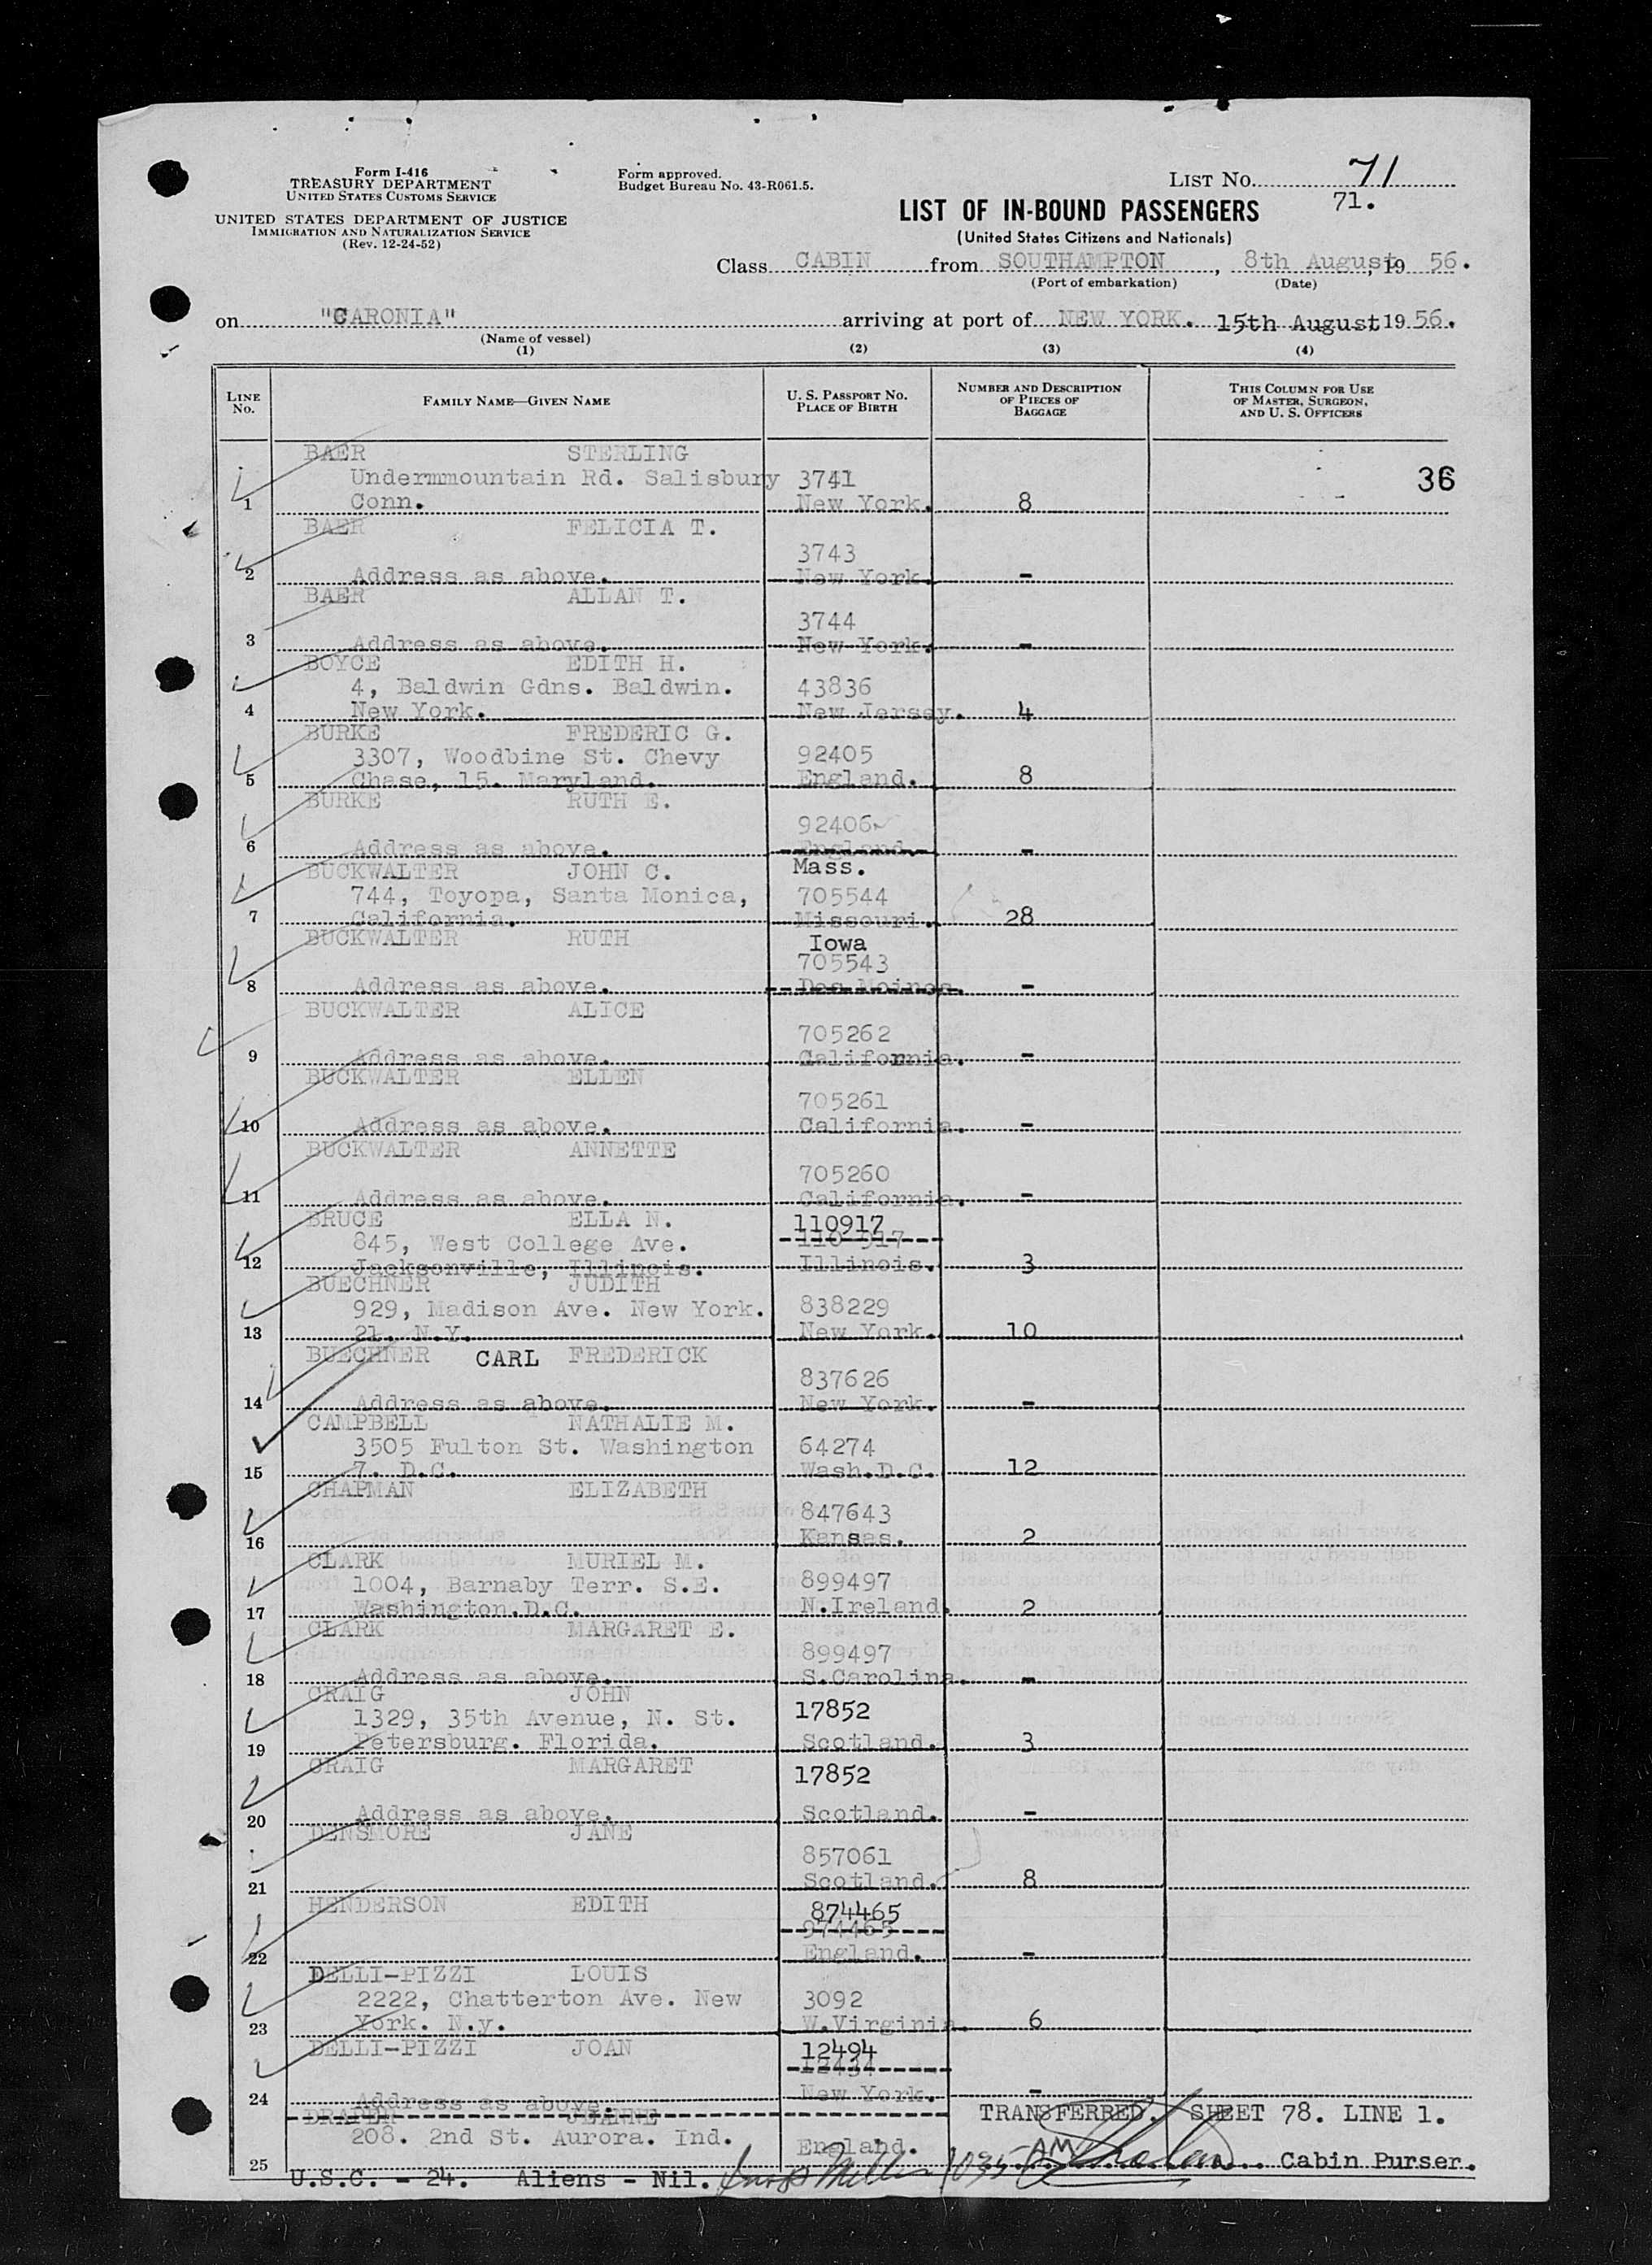 Form I-416
TREASURY DEPARTMENT
UNITED STATES CUSTOMS SERVICE
UNITED STATES DEPARTMENT OF JUSTICE
IMMIGRATION AND NATURALIZATION SERVICE
(Rev. 12-24-52)
Form approved.
Budget Bureau No. 43-R061.5.
LIST NO. 71
71.
LIST OF IN-BOUND PASSENGERS
(United States Citizens and Nationals)
Class CABIN from SOUTHAMPTON, 8th August, 19 56.
(Port of embarkation) (Date)
on "CARONIA" arriving at port of NEW YORK. 15th August 19 56.
(Name of vessel)
(1) (2) (3) (4)
LINE No. FAMILY NAME—GIVEN NAME U. S. PASSPORT NO. PLACE OF BIRTH NUMBER AND DESCRIPTION OF PIECES OF BAGGAGE THIS COLUMN FOR USE OF MASTER, SURGEON, AND U. S. OFFICERS
BAER STERLING
Undermmountain Rd. Salisbury 3741 36
1 Conn. New York. 8
BAER FELICIA T.
3743
2 Address as above. New York. -
BAER ALLAN T.
3744
3 Address as above. New York. -
BOYCE EDITH H.
4, Baldwin Gdns. Baldwin. 43836
4 New York. New Jersey. 4
BURKE FREDERIC G.
3307, Woodbine St. Chevy 92405
5 Chase, 15. Maryland. England. 8
BURKE RUTH E.
92406
6 Address as above. England. -
BUCKWALTER JOHN C. Mass.
744, Toyopa, Santa Monica, 705544
7 California. Missouri. 28
BUCKWALTER RUTH Iowa
705543
8 Address as above. Des Moines. -
BUCKWALTER ALICE
705262
9 Address as above. California. -
BUCKWALTER ELLEN
705261
10 Address as above. California. -
BUCKWALTER ANNETTE
705260
11 Address as above. California. -
BRUCE ELLA N. 110917
845, West College Ave. 110 917
12 Jacksonville, Illinois. Illinois. 3
BUECHNER JUDITH
929, Madison Ave. New York. 838229
13 21. N.Y. New York. 10
BUECHNER CARL FREDERICK
837626
14 Address as above. New York. -
CAMPBELL NATHALIE M.
3505 Fulton St. Washington 64274
15 7. D.C. Wash.D.C. 12
CHAPMAN ELIZABETH
847643
16 Kansas. 2
CLARK MURIEL M.
1004, Barnaby Terr. S.E. 899497
17 Washington.D.C. N.Ireland. 2
CLARK MARGARET E.
899497
18 Address as above. S.Carolina. -
CRAIG JOHN
1329, 35th Avenue, N. St. 17852
19 Petersburg. Florida. Scotland. 3
CRAIG MARGARET
17852
20 Address as above. Scotland. -
DENSMORE JANE
857061
21 Scotland. 8
HENDERSON EDITH 874465
974465
22 England. -
DELLI-PIZZI LOUIS
2222, Chatterton Ave. New 3092
23 York. N.y. W.Virginia. 6
DELLI-PIZZI JOAN 12494
24 Address as above. New York. -
DRAPER JEANNE TRANSFERRED. SHEET 78. LINE 1.
208. 2nd St. Aurora. Ind. England.
25 Cabin Purser.
U.S.C. - 24. Aliens - Nil. 1035 AM